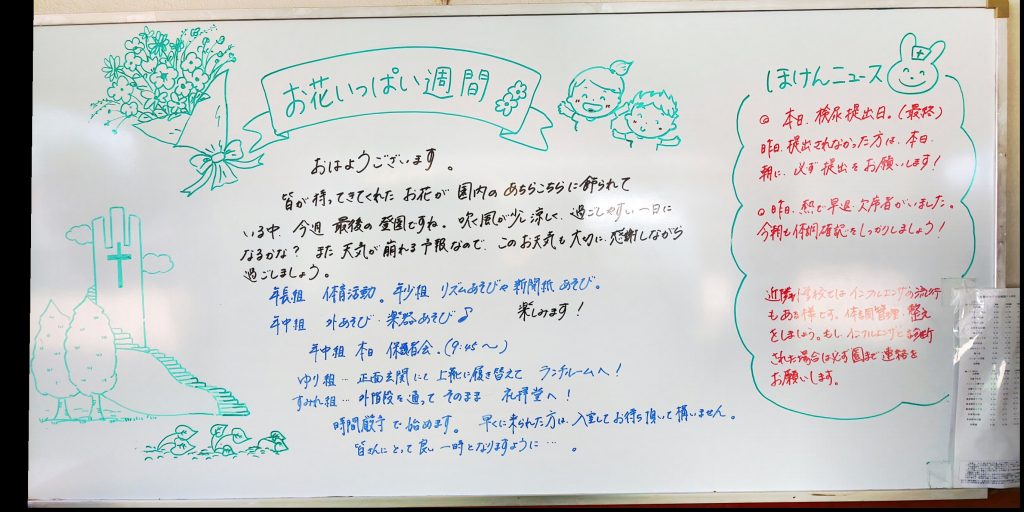 お花いっぱい週間
おはようございます。
皆が持ってきてくれた お花が 園内の あちらこちらに飾られて
いる中、今週 最後の 登園ですね。吹く風が少し涼しく、過ごしやすい一日に
なるかな？ また 天気が 崩れる予報なので、このお天気も大切に、感謝しながら
過ごしましょう。
年長組 体育活動。年少組 リズムあそびや 新聞紙あそび。
年中組 外あそび・楽器あそび♪ 楽しみます！
年中組 本日 保護者会・(9:45〜)
ゆり組… 正面玄関にて 上靴に履き替えて ランチルームへ！
すみれ組… 外階段を通って そのまま 礼拝堂へ！
時間厳守で始めます。 早くに来られた方は、入室してお待ち頂いて構いません。
皆さんにとって 良い 一時となりますように…。
ほけんニュース
◎ 本日、検尿提出日。(最終)
昨日、提出されなかった方は、本日、
朝に、必ず提出をお願いします！
◎昨日、熱で早退・欠席者がいました。
今朝も体調確認をしっかりしましょう！
近隣小学校では インフルエンザの流行
もある様です。体調管理・整え
をしましょう。もし、インフルエンザと診断
された場合は必ず園まで連絡を
お願いします。